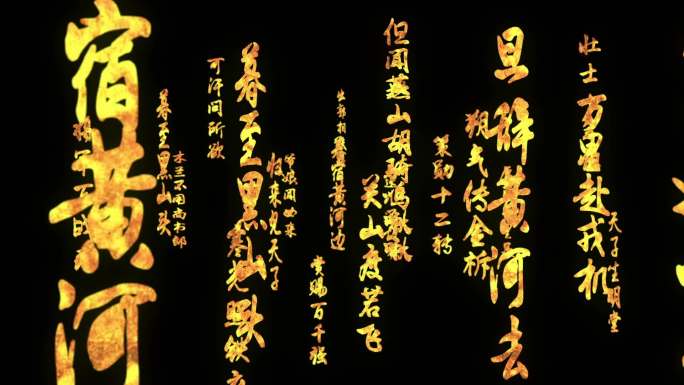 天子坐明堂
壮士
万里赴戎机
旦辞黄河去
朔气传金柝
策勋十二转
但闻燕山胡骑鸣啾啾
关山度若飞
宿黄河边
赏赐百千强
爷娘闻女来
归来见天子
暮至黑山头
寒光照铁衣
可汗问所欲
木兰不用尚书郎
暮至黑山头
宿黄河